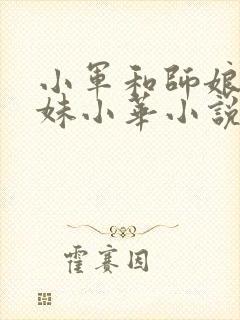 小軍和師娘
妹小華小說
霍賽因